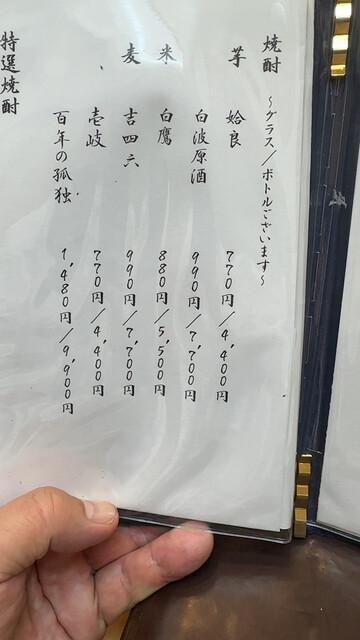 焼酎 ～グラス/ボトルございます～
芋 姶良 770円/4,400円
白波原酒 990円/7,700円
米 白鷹 880円/5,500円
麦 吉四六 990円/7,700円
壱岐 770円/4,400円
百年の孤独 1,480円/9,900円
特選焼酎